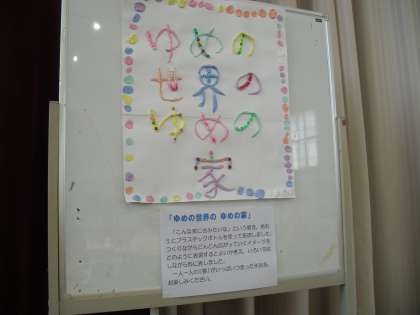 ゆめの
世界の
ゆめの
家
「ゆめの世界の ゆめの家」
「こんな家に住みたいな」という家を、ねん
土とプラスチックボトルを使って表現しました。
つくりながらどんどん広がっていくイメージを
どのように表現するとよいか考え、いろいろ
しながら形に表しました。
一人一人の「家」がいっぱいつまった
お楽しみください。